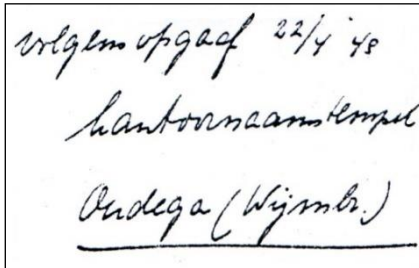 volgens opgaaf 22/4 '48
kantoornaamstempel
Oudega (Wijmbr.)